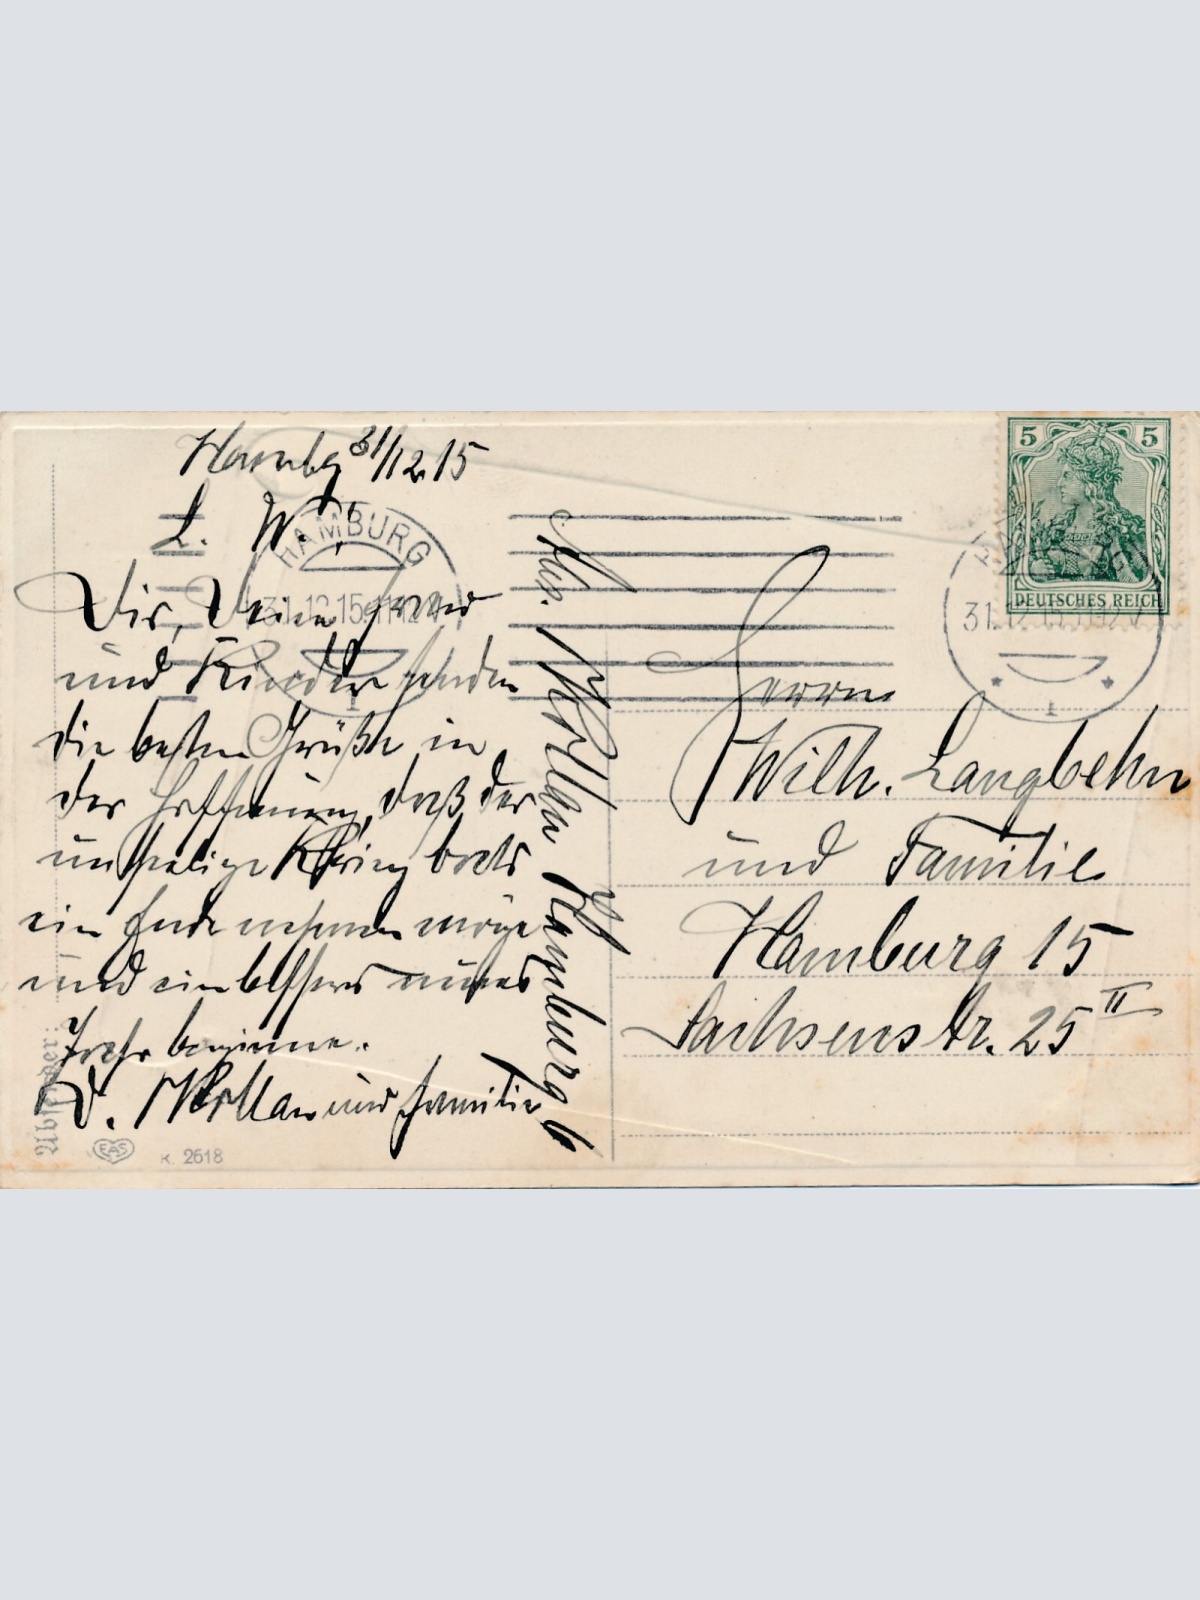 Hambg 31/12.15
L. W.!
Dir, Deine Frau
und Kinder senden
die besten Grüße in
der Hoffnung, daß der
unselige Krieg bald
ein Ende nehmen möge
und ein besseres neues
Jahr beginne.
D. und Familie
Hamburg 6
Abſender:
EAS
K. 2618
HAMBURG
31.12.15 11-12
1
5 5
DEUTSCHES REICH
31.12
1
Herrn
Wilh. Langbehn
und Familie
Hamburg 15
Sachsenstr. 25 II